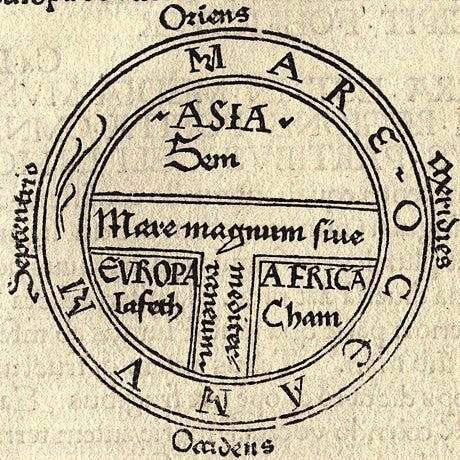 Oriens
MARE OCCEANVM
ASIA
Sem
Septentrio
Meridies
Mare magnum sive
mediter
raneum
EVROPA
Iafeth
AFRICA
Cham
Occidens